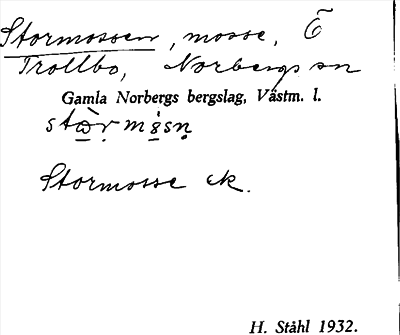 Stormossen, mosse, Ö
Trollbo, Norbergs sn
Gamla Norbergs bergslag, Västm. l.
Stormosse ek.
H. Ståhl 1932.